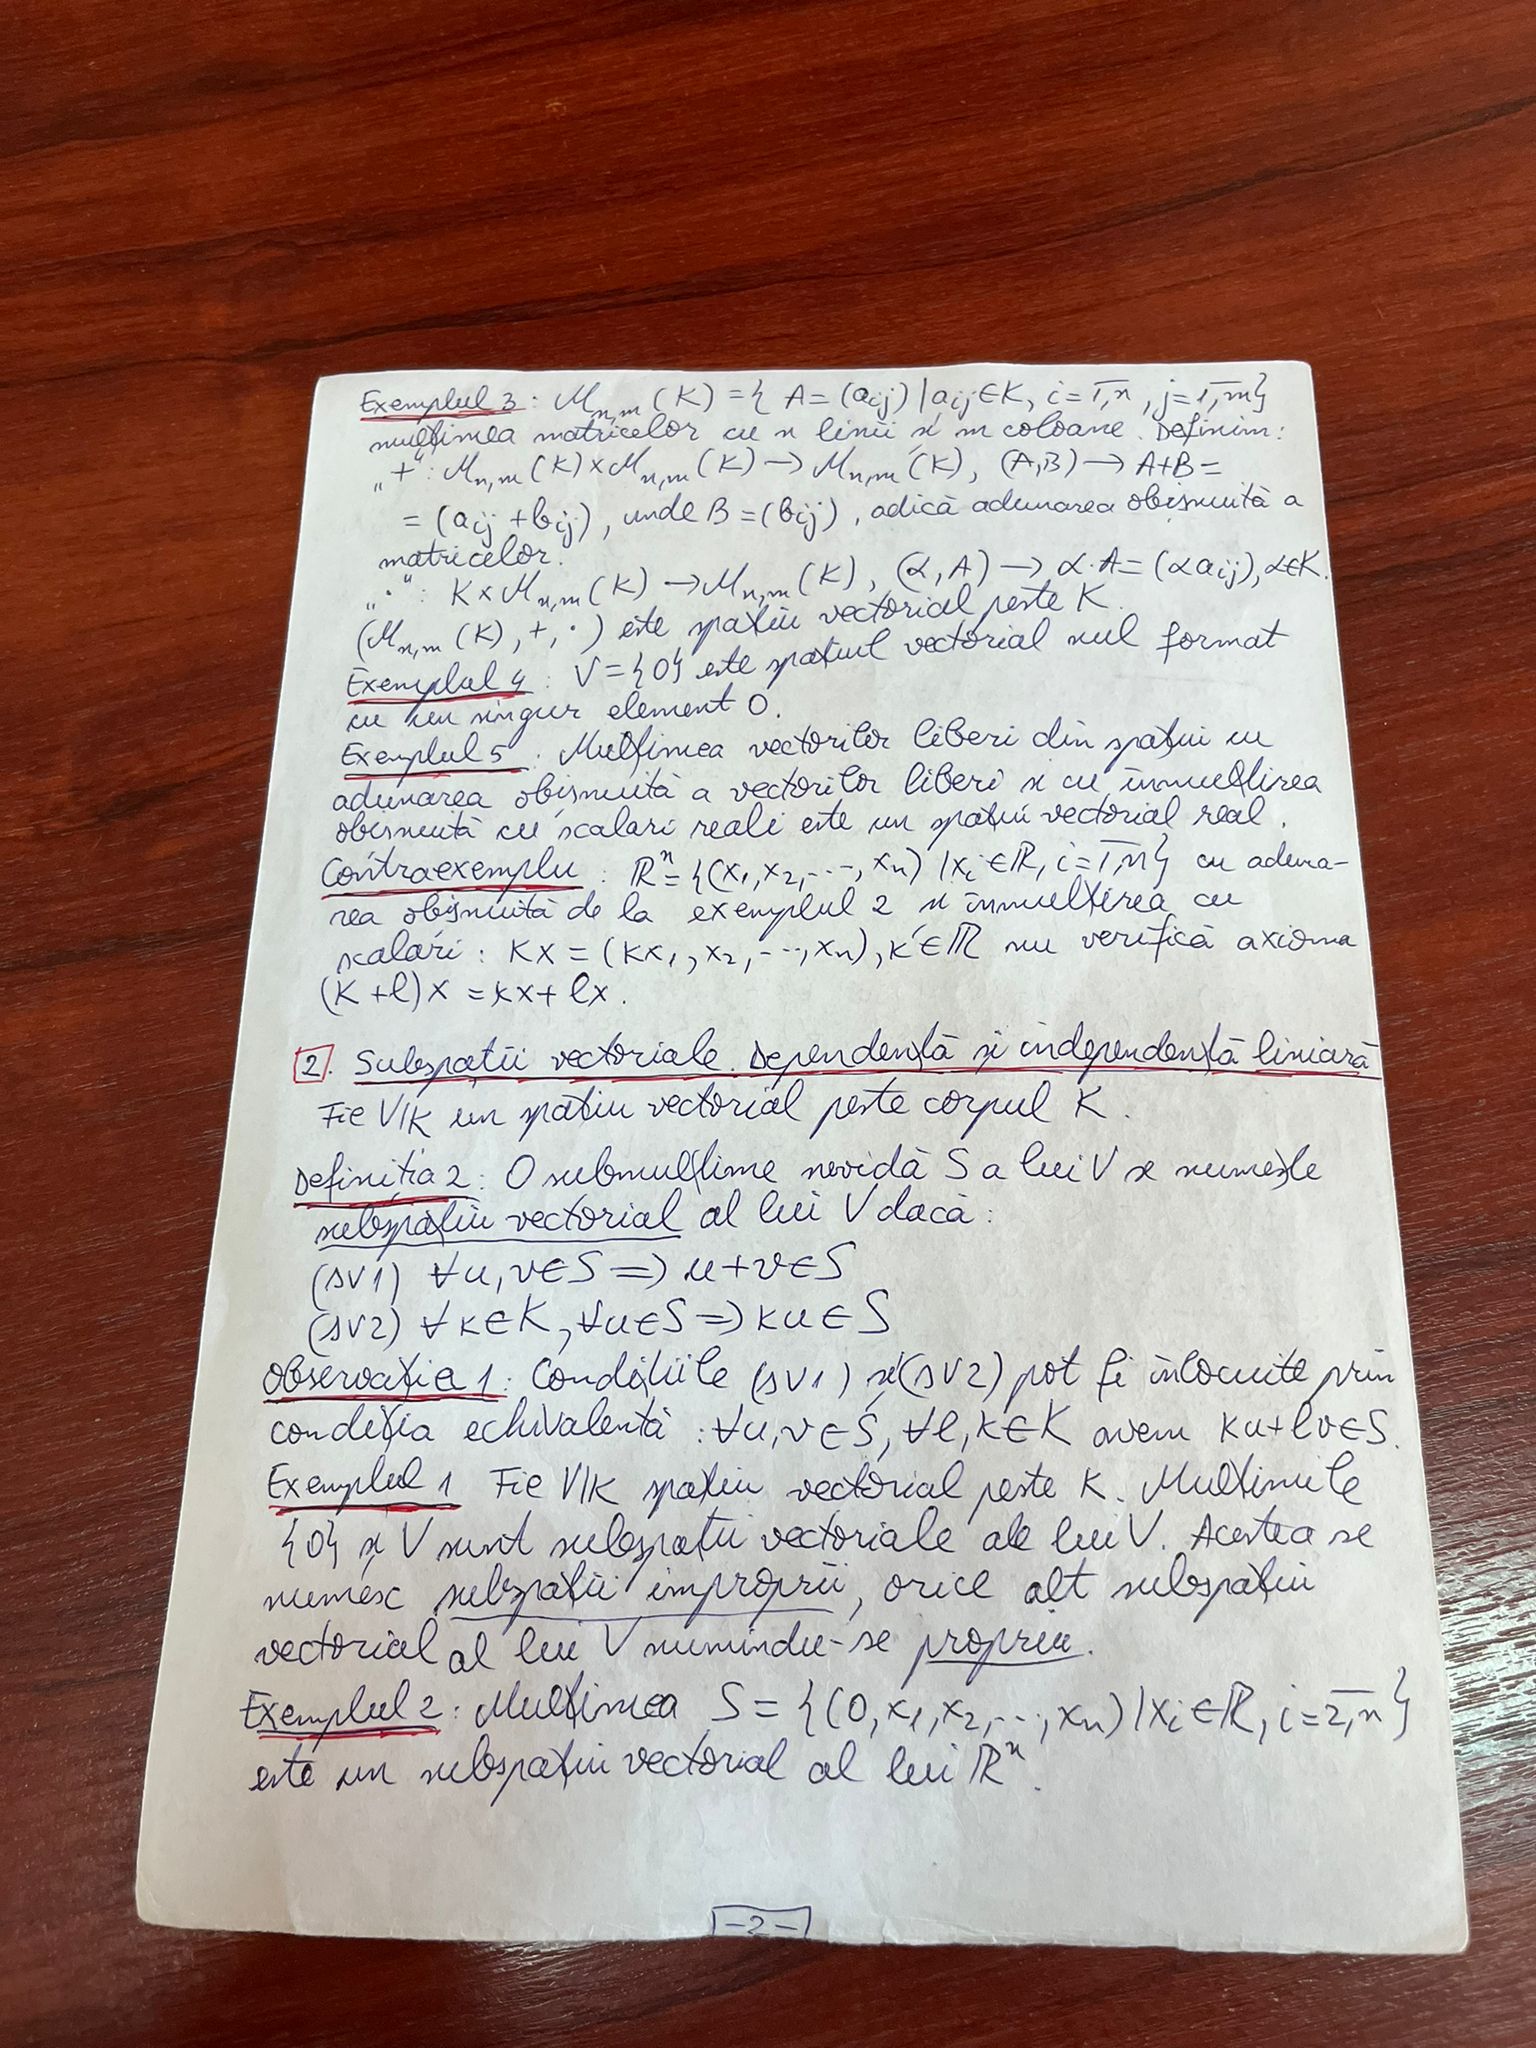 Exemplul 3: M_{n,m}(K) = { A = (a_{ij}) | a_{ij} ∈ K, i = \overline{1,n}, j = \overline{1,m} }
mulțimea matricelor cu n linii și m coloane. Definim:
„+": M_{n,m}(K) × M_{n,m}(K) → M_{n,m}(K), (A,B) → A+B =
= (a_{ij} + b_{ij}), unde B = (b_{ij}), adică adunarea obișnuită a
matricelor.
„·": K × M_{n,m}(K) → M_{n,m}(K), (α, A) → α·A = (αa_{ij}), α∈K.
(M_{n,m}(K), +, ·) este spațiu vectorial peste K.
Exemplul 4: V = {0} este spațiul vectorial nul format
cu un singur element 0.
Exemplul 5: Mulțimea vectorilor liberi din spațiu cu
adunarea obișnuită a vectorilor liberi și cu înmulțirea
obișnuită cu scalari reali este un spațiu vectorial real.
Contraexemplu: ℝⁿ = {(x₁, x₂, ..., xₙ) | x_i ∈ ℝ, i = \overline{1,n}} cu aduna-
rea obișnuită de la exemplul 2 și înmulțirea cu
scalari: kx = (kx₁, x₂, ..., xₙ), k ∈ ℝ nu verifică axioma
(k + l)x = kx + lx.
2. Subspații vectoriale. Dependență și independență liniară
Fie V/K un spațiu vectorial peste corpul K.
Definiția 2: O submulțime nevidă S a lui V se numește
subspațiu vectorial al lui V dacă:
(SV1) ∀u, v ∈ S ⇒ u + v ∈ S
(SV2) ∀k ∈ K, ∀u ∈ S ⇒ ku ∈ S
Observația 1: Condițiile (SV1) și (SV2) pot fi înlocuite prin
condiția echivalentă: ∀u, v ∈ S, ∀l, k ∈ K avem ku + lv ∈ S.
Exemplul 1 Fie V/K spațiu vectorial peste K. Mulțimile
{0} și V sunt subspații vectoriale ale lui V. Acestea se
numesc subspații improprii, orice alt subspațiu
vectorial al lui V numindu-se propriu.
Exemplul 2: Mulțimea S = {(0, x₁, x₂, ..., xₙ) | x_i ∈ ℝ, i = \overline{2,n}}
este un subspațiu vectorial al lui ℝⁿ.
-2-